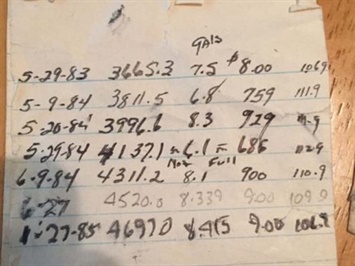 GAls
5-29-83 3665.3 7.5 $8.00 106.9
5-9-84 3811.5 6.8 759 111.9
5-20-84 3996.6 8.3 929 111.9
5-29-84 4137.1 6.1 = 686 112.9
Not Full
6-9-84 4311.2 8.1 900 110.9
6-27 4520.0 8.339 9.00 109.9
1-27-85 4697.0 8.415 9.00 106.9